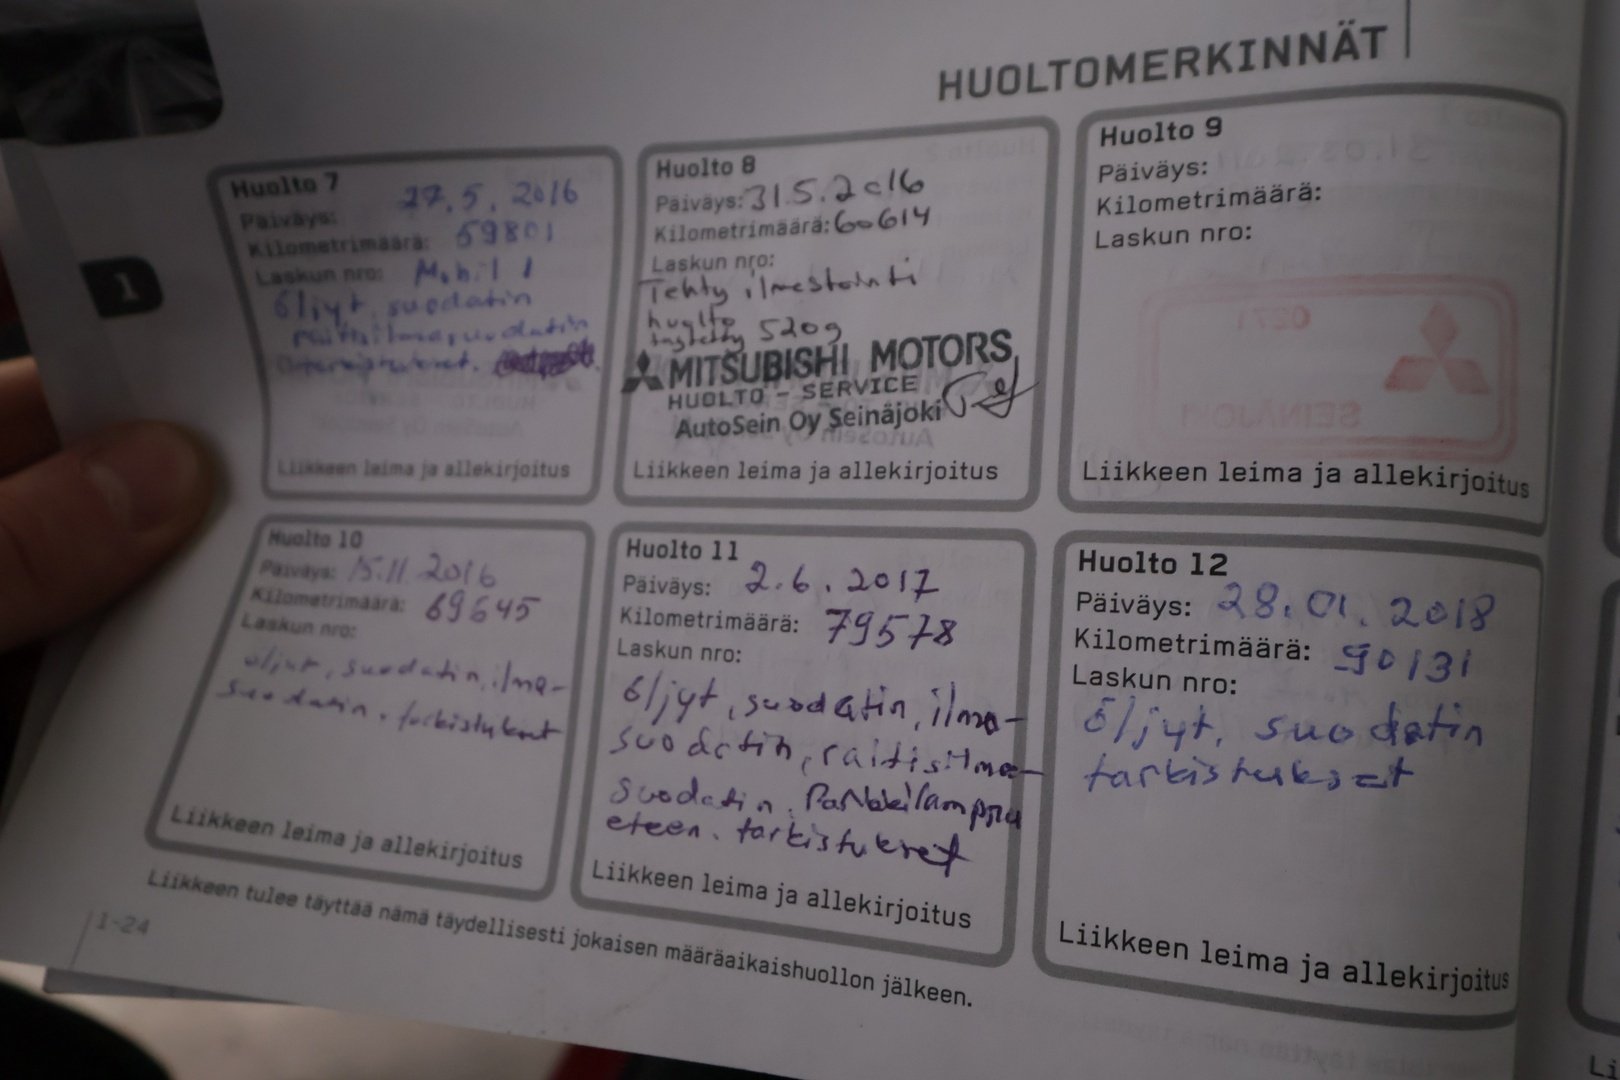 HUOLTOMERKINNÄT
1
Huolto 7
Päiväys: 27.5.2016
Kilometrimäärä: 59801
Laskun nro: Mobil 1
öljyt, suodatin
raitisilmasuodatin
Liikkeen leima ja allekirjoitus
Huolto 8
Päiväys: 31.5.2016
Kilometrimäärä: 60614
Laskun nro:
Tehty ilmastointi
huolto
täytetty 520g
MITSUBISHI MOTORS
HUOLTO - SERVICE
AutoSein Oy Seinäjoki
Liikkeen leima ja allekirjoitus
Huolto 9
Päiväys:
Kilometrimäärä:
Laskun nro:
0271
SEINÄJOKI
Liikkeen leima ja allekirjoitus
Huolto 10
Päiväys: 15.11 2016
Kilometrimäärä: 69645
Laskun nro:
öljyt, suodatin, ilma-
suodatin, tarkistukset
Liikkeen leima ja allekirjoitus
Huolto 11
Päiväys: 2.6.2017
Kilometrimäärä: 79578
Laskun nro:
öljyt, suodatin, ilma-
suodatin, raitisilma-
suodatin. Parkkilamppu
eteen. tarkistukset
Liikkeen leima ja allekirjoitus
Huolto 12
Päiväys: 28.01.2018
Kilometrimäärä: 90131
Laskun nro:
öljyt, suodatin
tarkistukset
Liikkeen leima ja allekirjoitus
Liikkeen tulee täyttää nämä täydellisesti jokaisen määräaikaishuollon jälkeen.
1-24